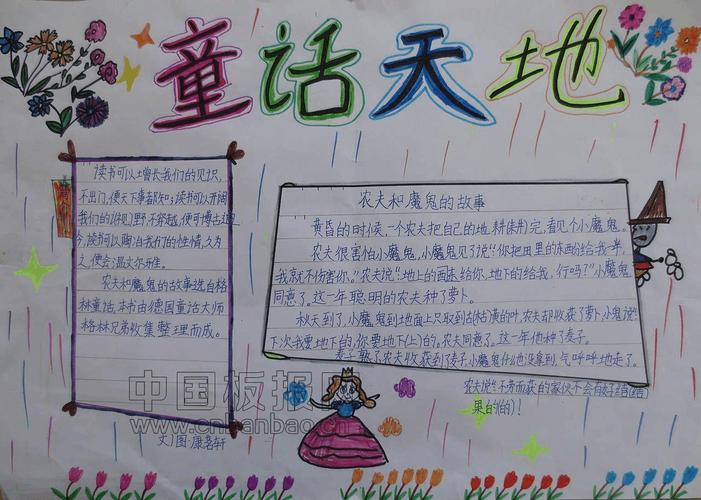 童话天地
读书可以增长我们的见识,
不出门,便天下事都知;读书可以开阔
我们的视野,不穷越,便可博古通
今,读书可以陶冶我们的性情,久为
之,便会温文尔雅。
农夫和魔鬼的故事选自格
林童话,本书由德国童话大师
格林兄弟收集整理而成。
文/图:康茗轩
农夫和魔鬼的故事
黄昏的时候,一个农夫把自己的地耕(耕)完,看见个小魔鬼。
农夫很害怕小魔鬼,小魔鬼见了说:“你把田里的东西分给我一半,
我就不伤害你。”农夫说:“地上的给你,地下的给我,行吗?”小魔鬼
同意了。这一年聪明的农夫种了萝卜。
秋天到了,小魔鬼到地面上只取到(枯)黄的叶,农夫却收获了萝卜,小鬼说:“
下次我要地下的,你要地下(上)的,农夫同意了。这一年他种了麦子。
麦子熟了农夫收获到麦子,小魔鬼什么也没拿到,气呼呼地走了。
农夫说:“不劳而获的家伙不会有好结(结)
果的(的)!
中国板报网
www.chinabanbao.cn